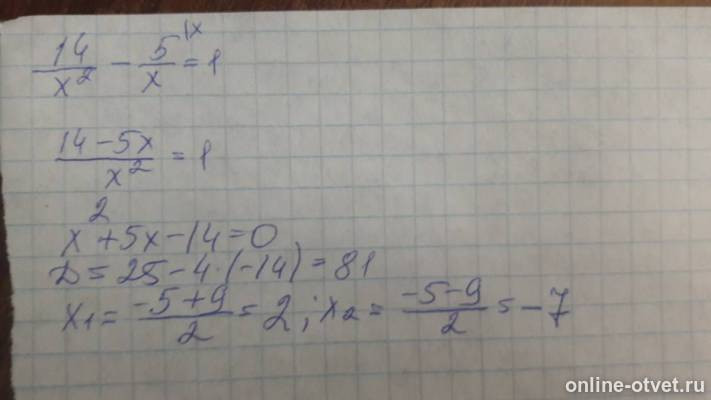 14/x² − 5/x = 1 |x
(14 − 5x)/x² = 1
x² + 5x − 14 = 0
D = 25 − 4·(−14) = 81
x₁ = (−5 + 9)/2 = 2; x₂ = (−5 − 9)/2 = −7
online-otvet.ru